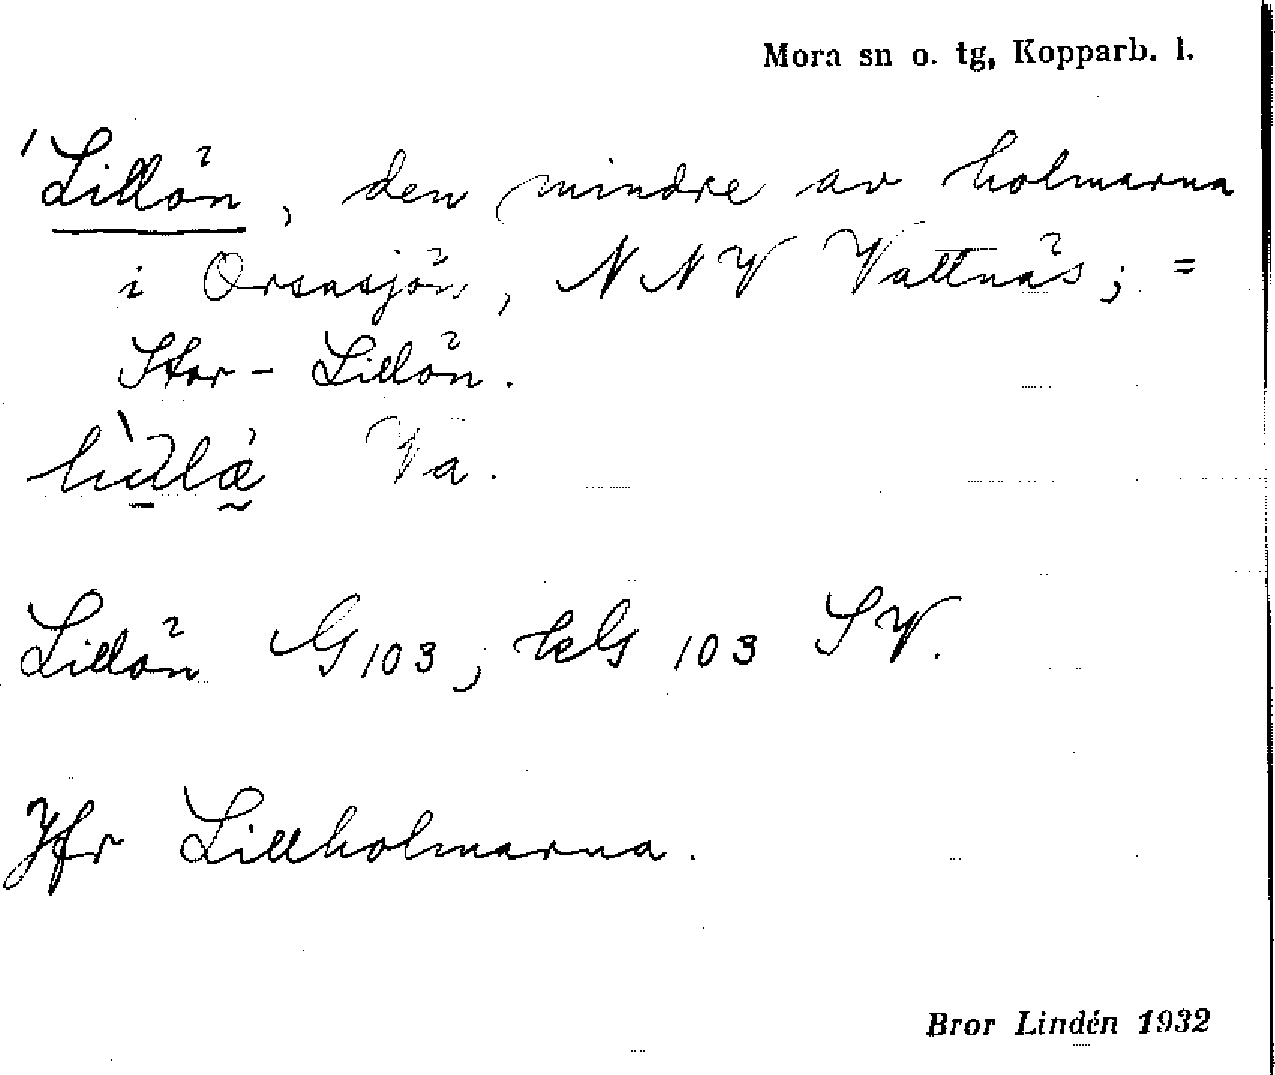 Mora sn o. tg, Kopparb. l.
Lillön, den mindre av holmarna
i Orsasjön, NNV Vattnäs; =
Stor-Lillön.
Va.
Lillön G 103; kG 103 SV.
Jfr Lillholmarna.
Bror Lindén 1932